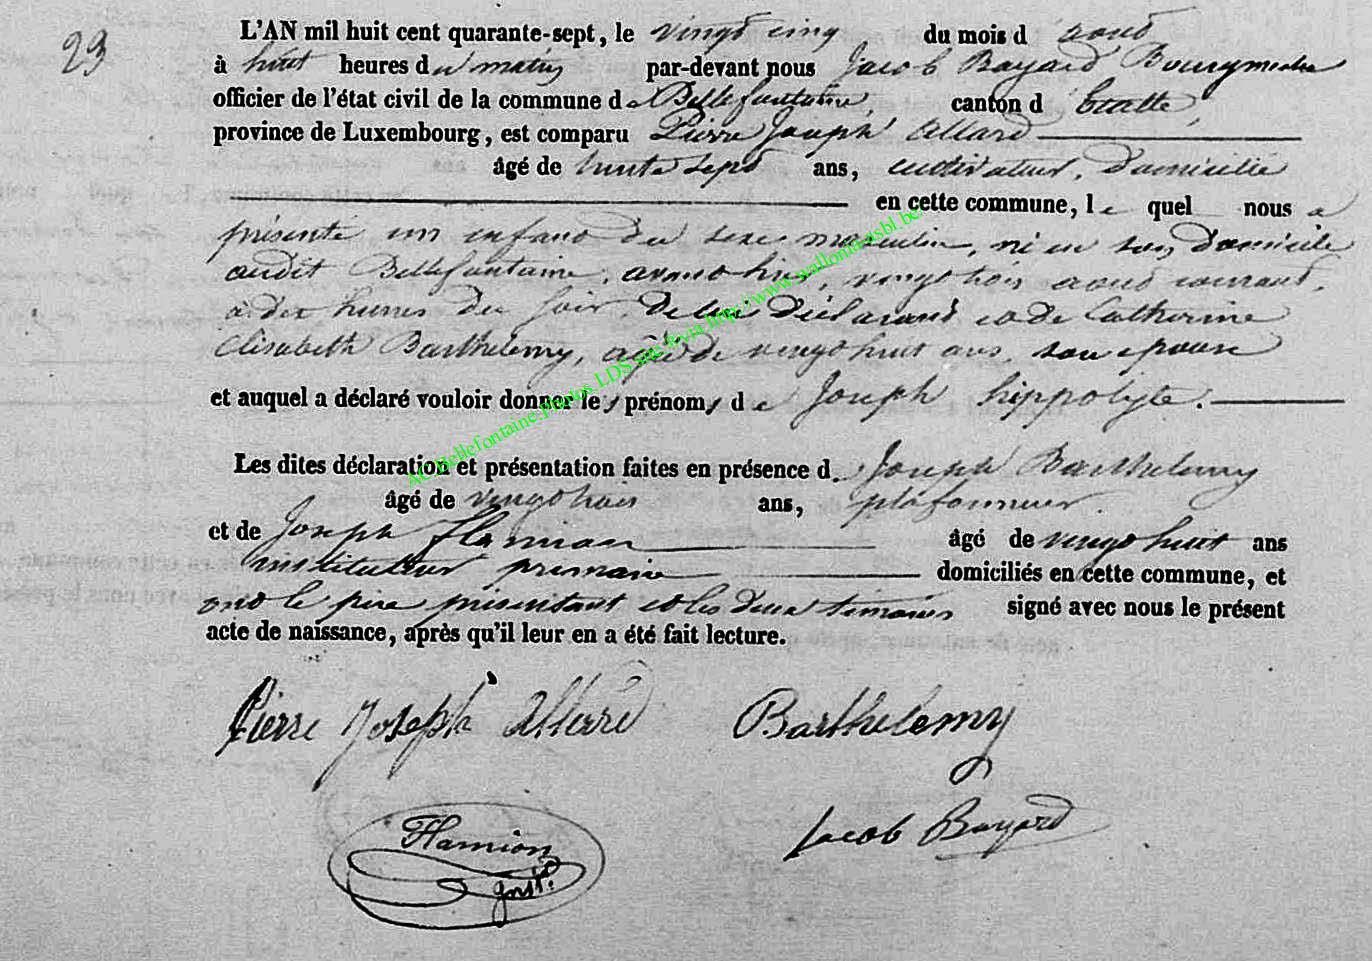 23
L'AN mil huit cent quarante-sept, le vingt cinq du mois d août
à huit heures du matin par-devant nous Jacob Bayard Bourgmestre
officier de l'état civil de la commune de Bellefontaine, canton d'Etalle,
province de Luxembourg, est comparu Pierre Joseph Allard
âgé de trente sept ans, cultivateur, domicilié
en cette commune, lequel nous a
présenté un enfant du sexe masculin, né en son domicile
audit Bellefontaine, avant hier, vingt trois août courant,
à dix heures du soir, de lui déclarant et de Catherine
Elisabeth Barthelemy, agée de vingt huit ans, son epouse
et auquel a déclaré vouloir donner les prénoms de Joseph hippolyte.
Les dites déclaration et présentation faites en présence d. Joseph Barthelemy
âgé de vingt trois ans, plafonneur.
et de Joseph Hamion âgé de vingt huit ans
instituteur primaire domiciliés en cette commune, et
ont le père présentant et les deux témoins signé avec nous le présent
acte de naissance, après qu'il leur en a été fait lecture.
Pierre Joseph Allard Barthelemy
Hamion
Instr.
Jacob Bayard
AC Bellefontaine.Photos LDS sur le via http://www.wallonia-asbl.be/